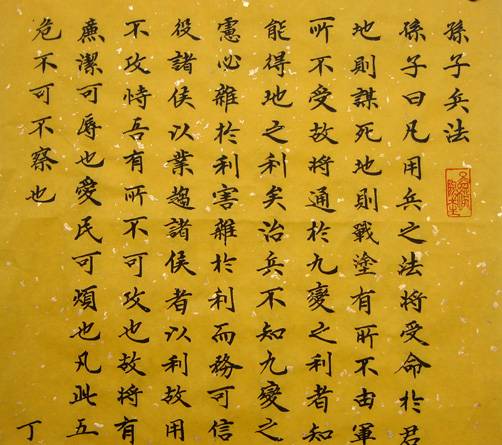 孫子兵法
孫子曰凡用兵之法將受命於君
地則謀死地則戰塗有所不由軍
所不受故將通於九變之利者知
能得地之利矣治兵不知九變之
慮必雜於利害雜於利而務可信
役諸侯以業趨諸侯者以利故用
不攻恃吾有所不可攻也故將有
廉潔可辱也愛民可煩也凡此五
危不可不察也
丁